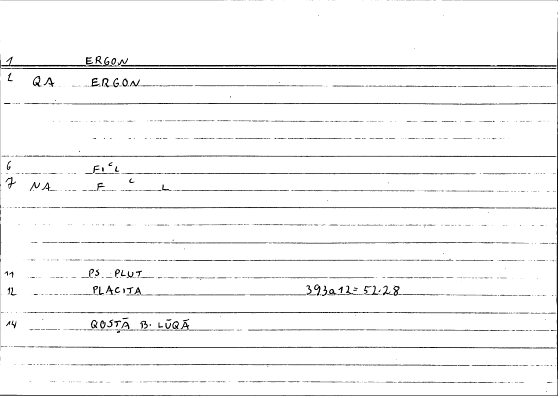 1 ERGON
2 QA ERGON
6 FIʿL
7 NA F ʿ L
11 PS PLUT
12 PLACITA 393a12 = 52.28
14 QOSṬĀ B. LŪQĀ